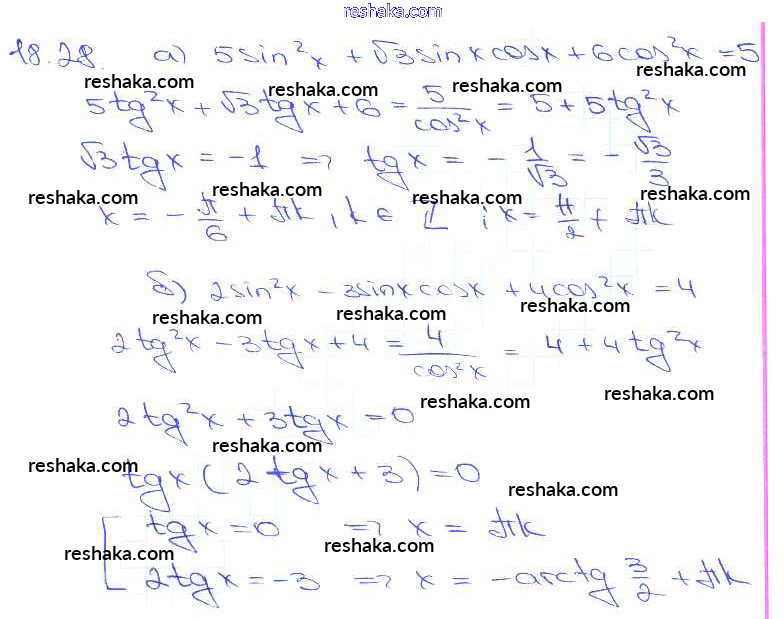 reshaka.com
18.28. а) 5sin²x + √3 sinx cosx + 6cos²x = 5
reshaka.com reshaka.com reshaka.com reshaka.com
5tg²x + √3 tgx + 6 = 5/cos²x = 5 + 5tg²x
reshaka.com reshaka.com
√3 tgx = -1 => tgx = - 1/√3 = - √3/3
reshaka.com reshaka.com reshaka.com
x = - π/6 + πk, k ∈ Z ; x = π/2 + πk
б) 2sin²x - 3sinx cosx + 4cos²x = 4
reshaka.com reshaka.com reshaka.com
2tg²x - 3tgx + 4 = 4/cos²x = 4 + 4tg²x
reshaka.com reshaka.com
2tg²x + 3tgx = 0
reshaka.com reshaka.com
tgx (2tgx + 3) = 0
reshaka.com
[ tgx = 0 => x = πk
reshaka.com reshaka.com
2tgx = -3 => x = -arctg 3/2 + πk